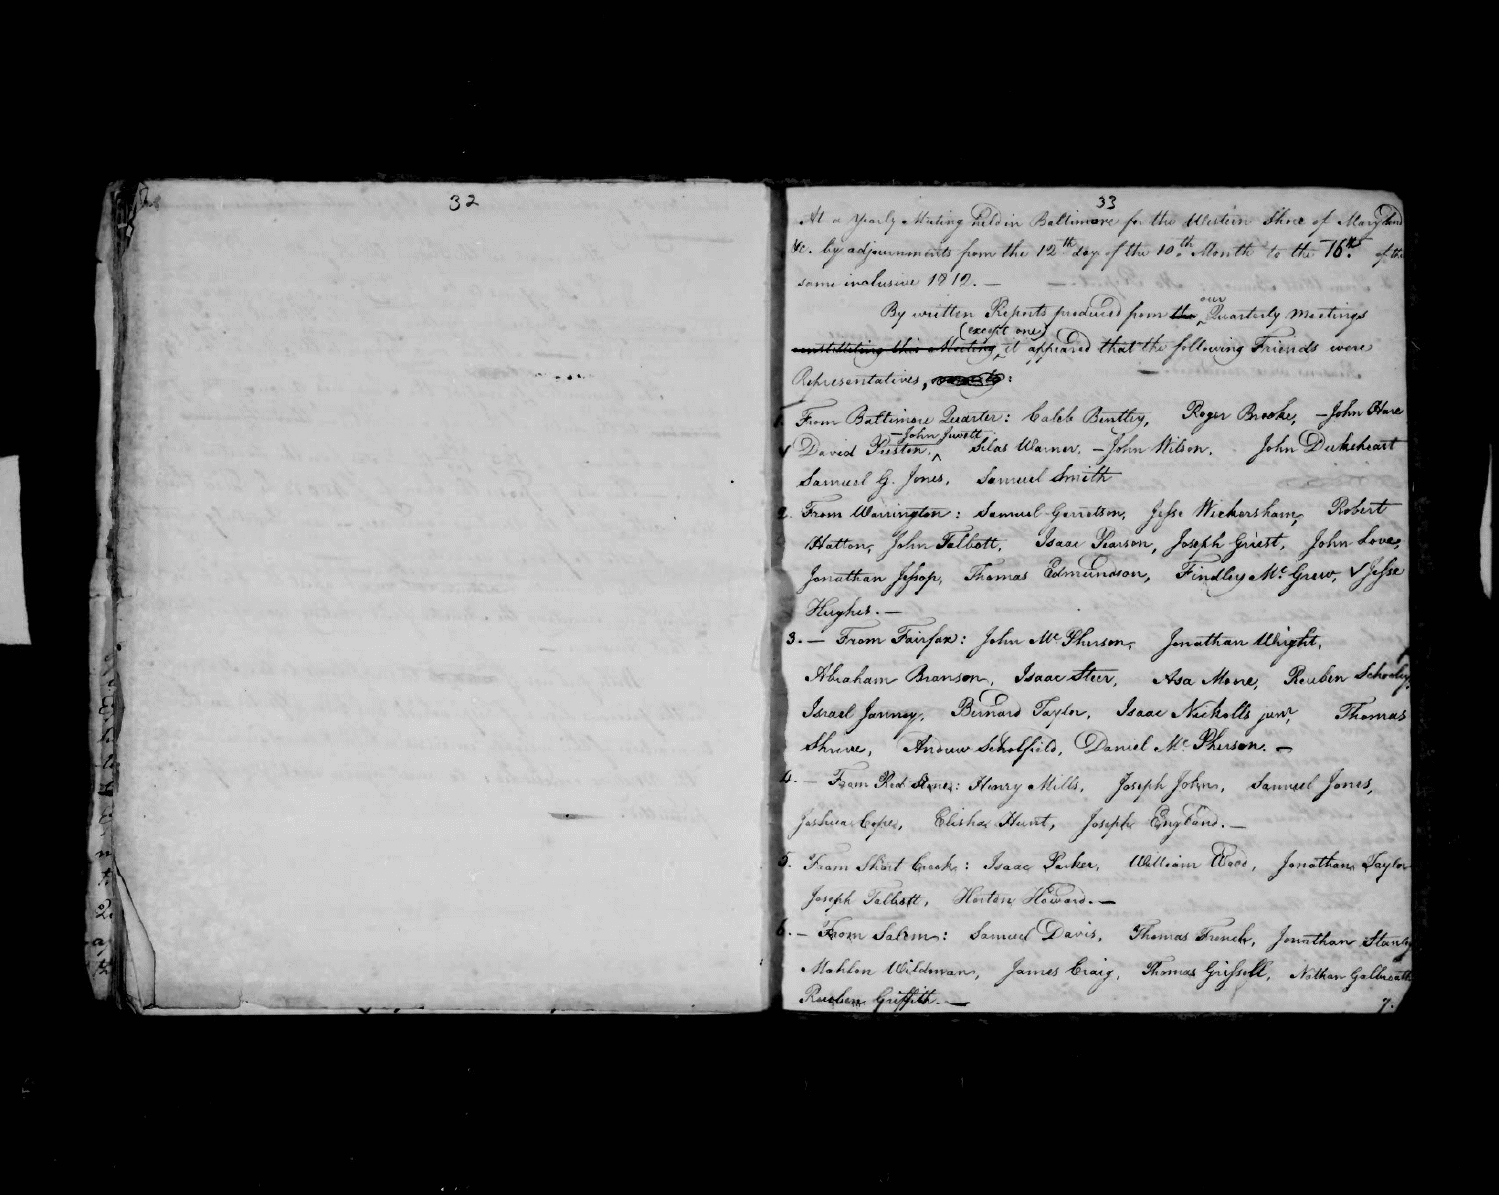 32
33
At a Yearly Meeting held in Baltimore for the Western Shore of Maryland
&c. by adjournments from the 12th day of the 10th Month to the 16th of the
same inclusive 1812. —
By written Reports produced from the our Quarterly Meetings
constituting this Meeting, (except one) it appeared that the following Friends were
Representatives, :
1. From Baltimore Quarter: Caleb Bentley, Roger Brooke, – John Hare
David Preston, – John Jewett Silas Warner, – John Wilson, John Dukeheart
Samuel G. Jones, Samuel Smith
2. From Warrington: Samuel Garretson, Jesse Wickersham, Robert
Hatton, John Talbott, Isaac Pearson, Joseph Griest, John Love,
Jonathan Jessop, Thomas Edmundson, Findley Mc Grew, Jesse
Hughes. —
3. — From Fairfax: John Mc Pherson, Jonathan Wright,
Abraham Branson, Isaac Steer, Asa Moore, Reuben Schooley,
Israel Janney, Bernard Taylor, Isaac Nicholls junr, Thomas
Shreve, Andrew Scholfield, Daniel Mc Pherson. —
4. — From Red Stone: Henry Mills, Joseph John, Samuel Jones,
Joshua Cope, Elisha Hunt, Joseph England. —
5. From Short Creek: Isaac Parker, William Wood, Jonathan Taylor
Joseph Talbott, Horton Howard. —
6. — From Salem: Samuel Davis, Thomas French, Jonathan Stanley
Mahlon Wildman, James Craig, Thomas Grissell, Nathan Galbreath
Reuben Griffith. —
7.